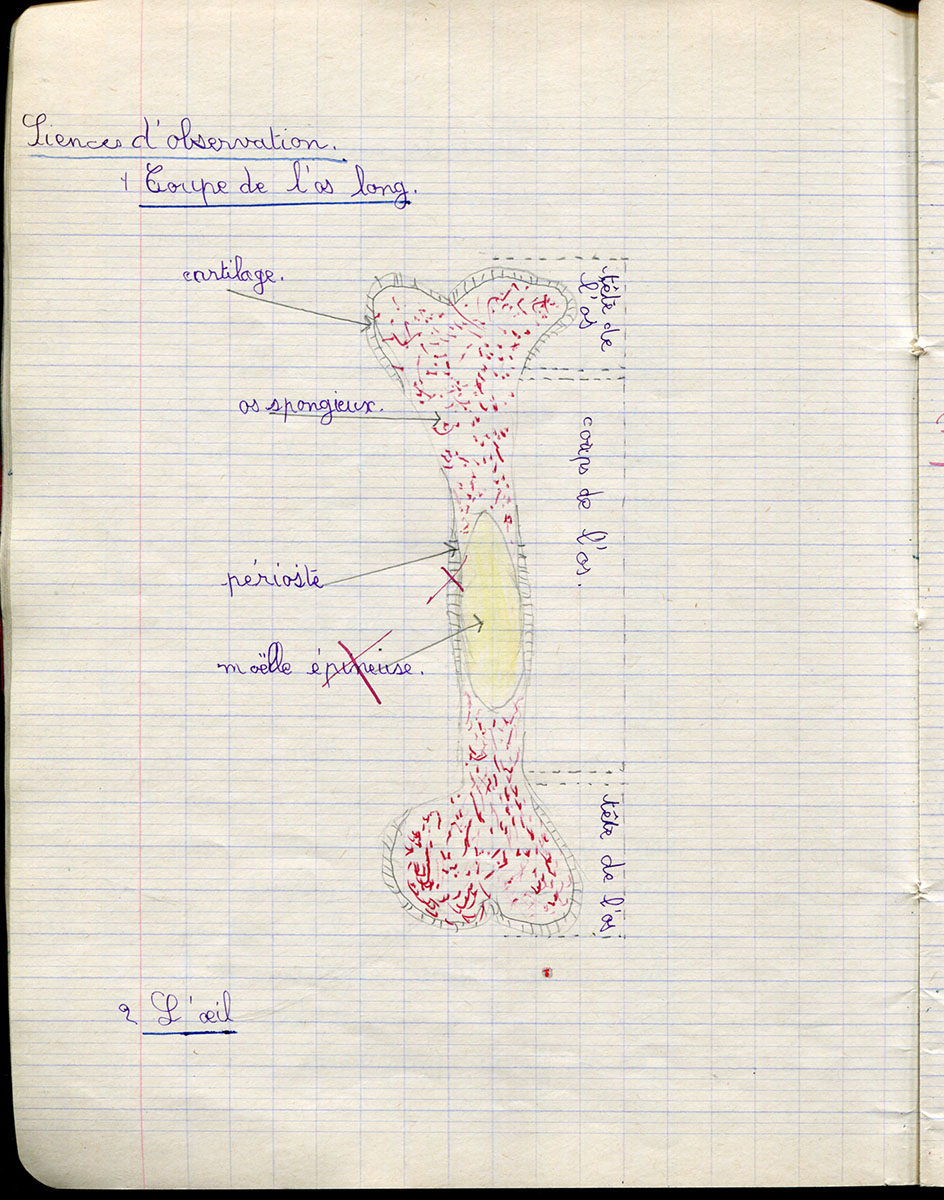 Siences d'observation.
1 Coupe de l'os long.
cartilage.
tête de
l'os
os spongieux.
corps de l'os.
périoste
moëlle épineuse.
tête de l'os.
2 L'œil